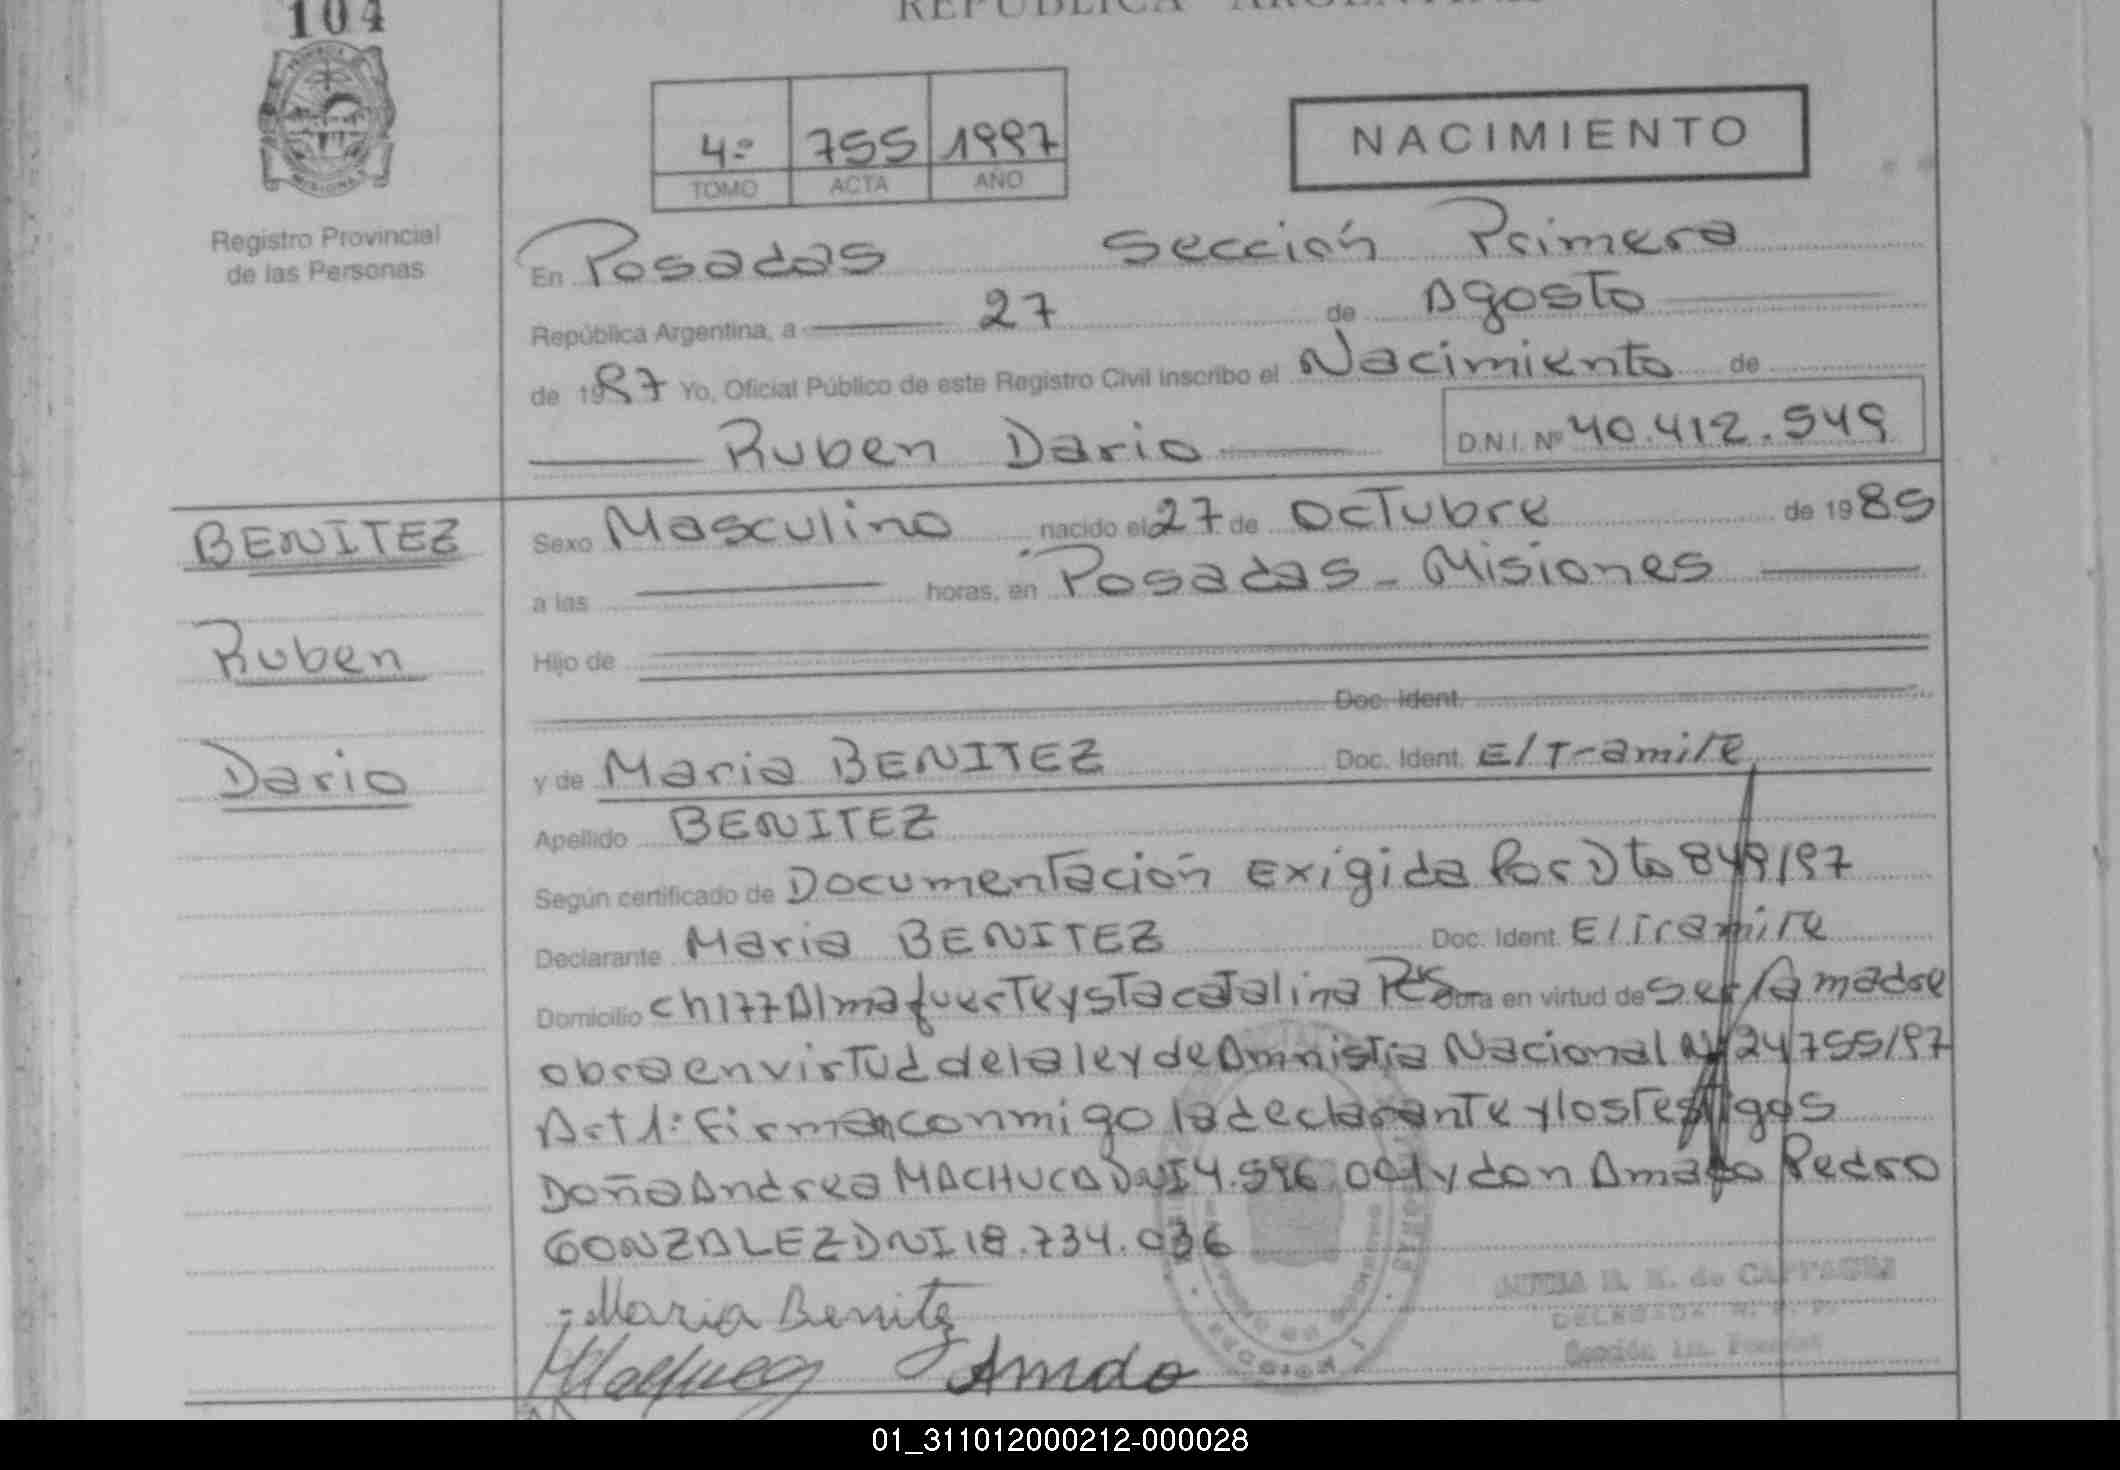 104
REPUBLICA ARGENTINA
PROVINCIA
MISIONES
Registro Provincial
de las Personas
4º 755 1997
TOMO ACTA AÑO
NACIMIENTO
En Posadas Sección Primera
República Argentina, a 27 de Agosto
de 1997 Yo, Oficial Público de este Registro Civil inscribo el Nacimiento de
Ruben Dario D.N.I. Nº 40.412.549
BENITEZ
Ruben
Dario
Sexo Masculino nacido el 27 de Octubre de 1989
a las horas, en Posadas - Misiones
Hijo de
Doc. Ident.
y de Maria BENITEZ Doc. Ident. E/Tramite
Apellido BENITEZ
Según certificado de Documentación Exigida Por Dto 849/97
Declarante Maria BENITEZ Doc. Ident. E/Tramite
Domicilio Ch 177 Almafuerte y Sta Catalina Pds Obra en virtud de Ser la madre
obra en virtud de la ley de Amnistia Nacional Nº 24755/97
Art 1: Firman conmigo la declarante y los Testigos
Doña Andrea MACHUCA DNI 4.596.001 y don Amado Pedro
GONZALEZ DNI 18.734.036
Maria Benitez
Amdo
SECCION 1
DELEGADA R. P. P.
Sección 1ra. Posadas
01_311012000212-000028